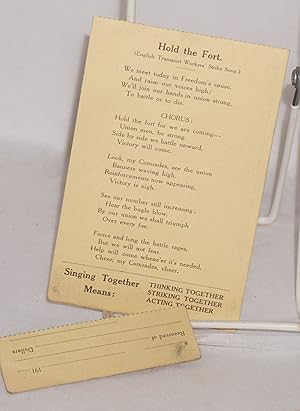 Hold the Fort.
(English Transport Workers' Strike Song.)
We meet today in Freedom's cause,
And raise our voices high;
We'll join our hands in union strong,
To battle or to die.
CHORUS:
Hold the fort for we are coming—
Union men, be strong.
Side by side we battle onward,
Victory will come.
Look, my Comrades, see the union
Banners waving high.
Reinforcements now appearing,
Victory is nigh.
See our number still increasing;
Hear the bugle blow.
By our union we shall triumph
Over every foe.
Fierce and long the battle rages,
But we will not fear.
Help will come whene'er it's needed,
Cheer, my Comrades, cheer.
Singing Together
Means:
THINKING TOGETHER
STRIKING TOGETHER
ACTING TOGETHER
191
Received of
Dollars